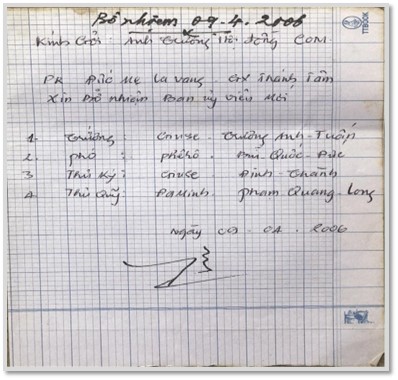 Bổ nhiệm 09.4.2006
Kính Gởi: Anh Trưởng Hội đồng COM
PR Đức Mẹ La vang. GX Thánh Tâm
Xin Bổ nhiệm Ban ủy viên Mới
1. Trưởng: Giuse. Trương Anh-Tuấn
2. phó: phêrô. Bùi Quốc-Đức
3 Thư ký: Giuse. Đinh-Thành
4. Thủ Quỹ Đaminh. phạm Quang-Long
Ngày 09.04.2006
TTBOOK